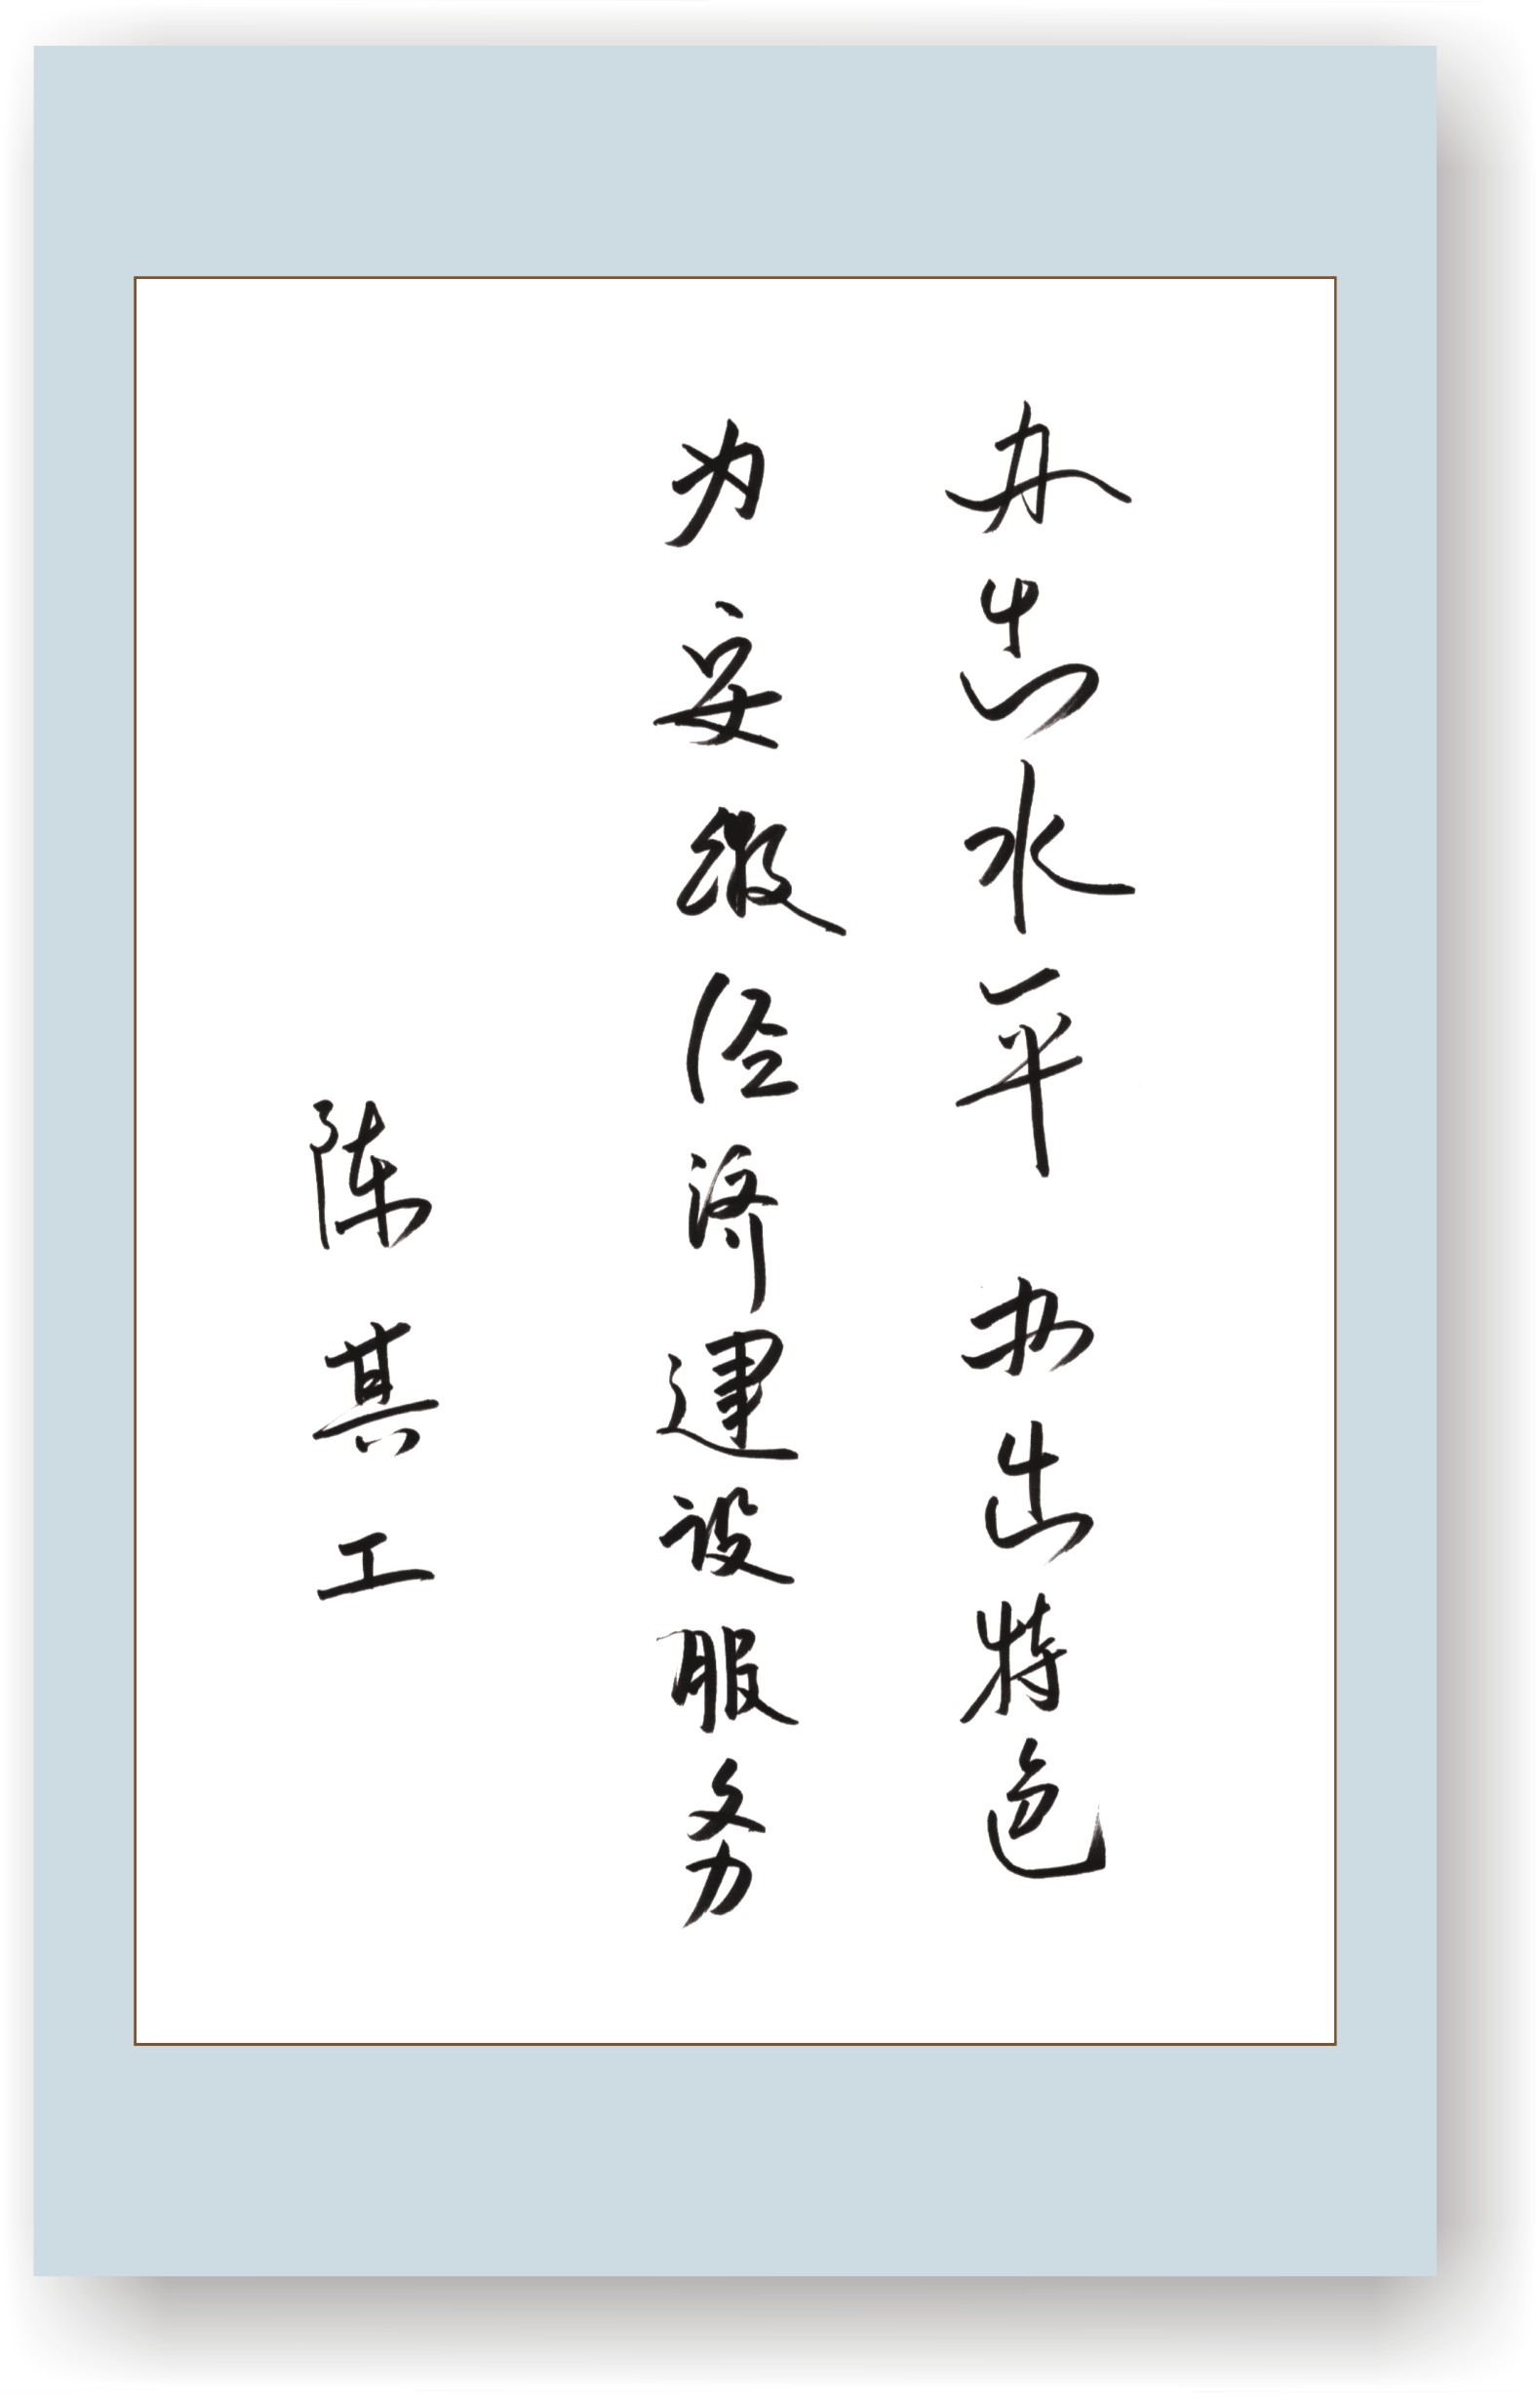 办出水平 办出特色
为安徽经济建设服务
陈其工